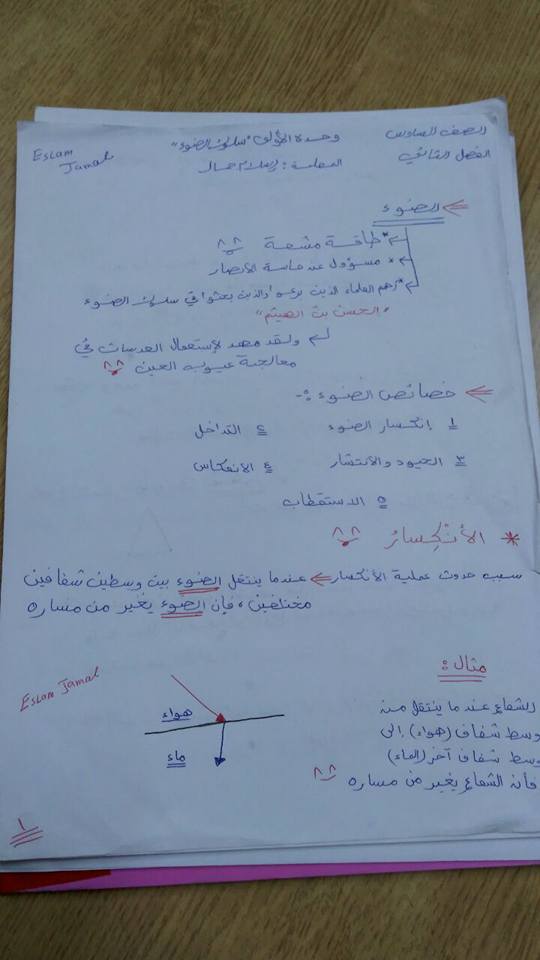 الصف السادس
وحدة الأولى "سلوك الضوء"
Eslam Jamal
الفصل الثاني
المعلمة : إسلام جمال
الضوء
* طاقة مشعة
* مسؤول عن حاسة الأبصار
* أهم العلماء الذين برعوا والذين بحثوا في سلوك الضوء
"الحسن بن الهيثم"
ولقد مهد لإستعمال العدسات في
معالجة عيوب العين
خصائص الضوء :-
١ إنكسار الضوء ٢ التداخل
٣ الحيود والانتشار ٤ الانعكاس
٥ الاستقطاب
* الأنْكِسارُ
سبب حدوث عملية الأنكسار عندما ينتقل الضوء بين وسطين شفافين
مختلفين، فإن الضوء يغير من مساره
مثال :
الشعاع عندما ينتقل من
وسط شفاف (هواء) إلى
وسط شفاف آخر (الماء)
فأن الشعاع يغير من مساره
Eslam Jamal
هواء
ماء
١